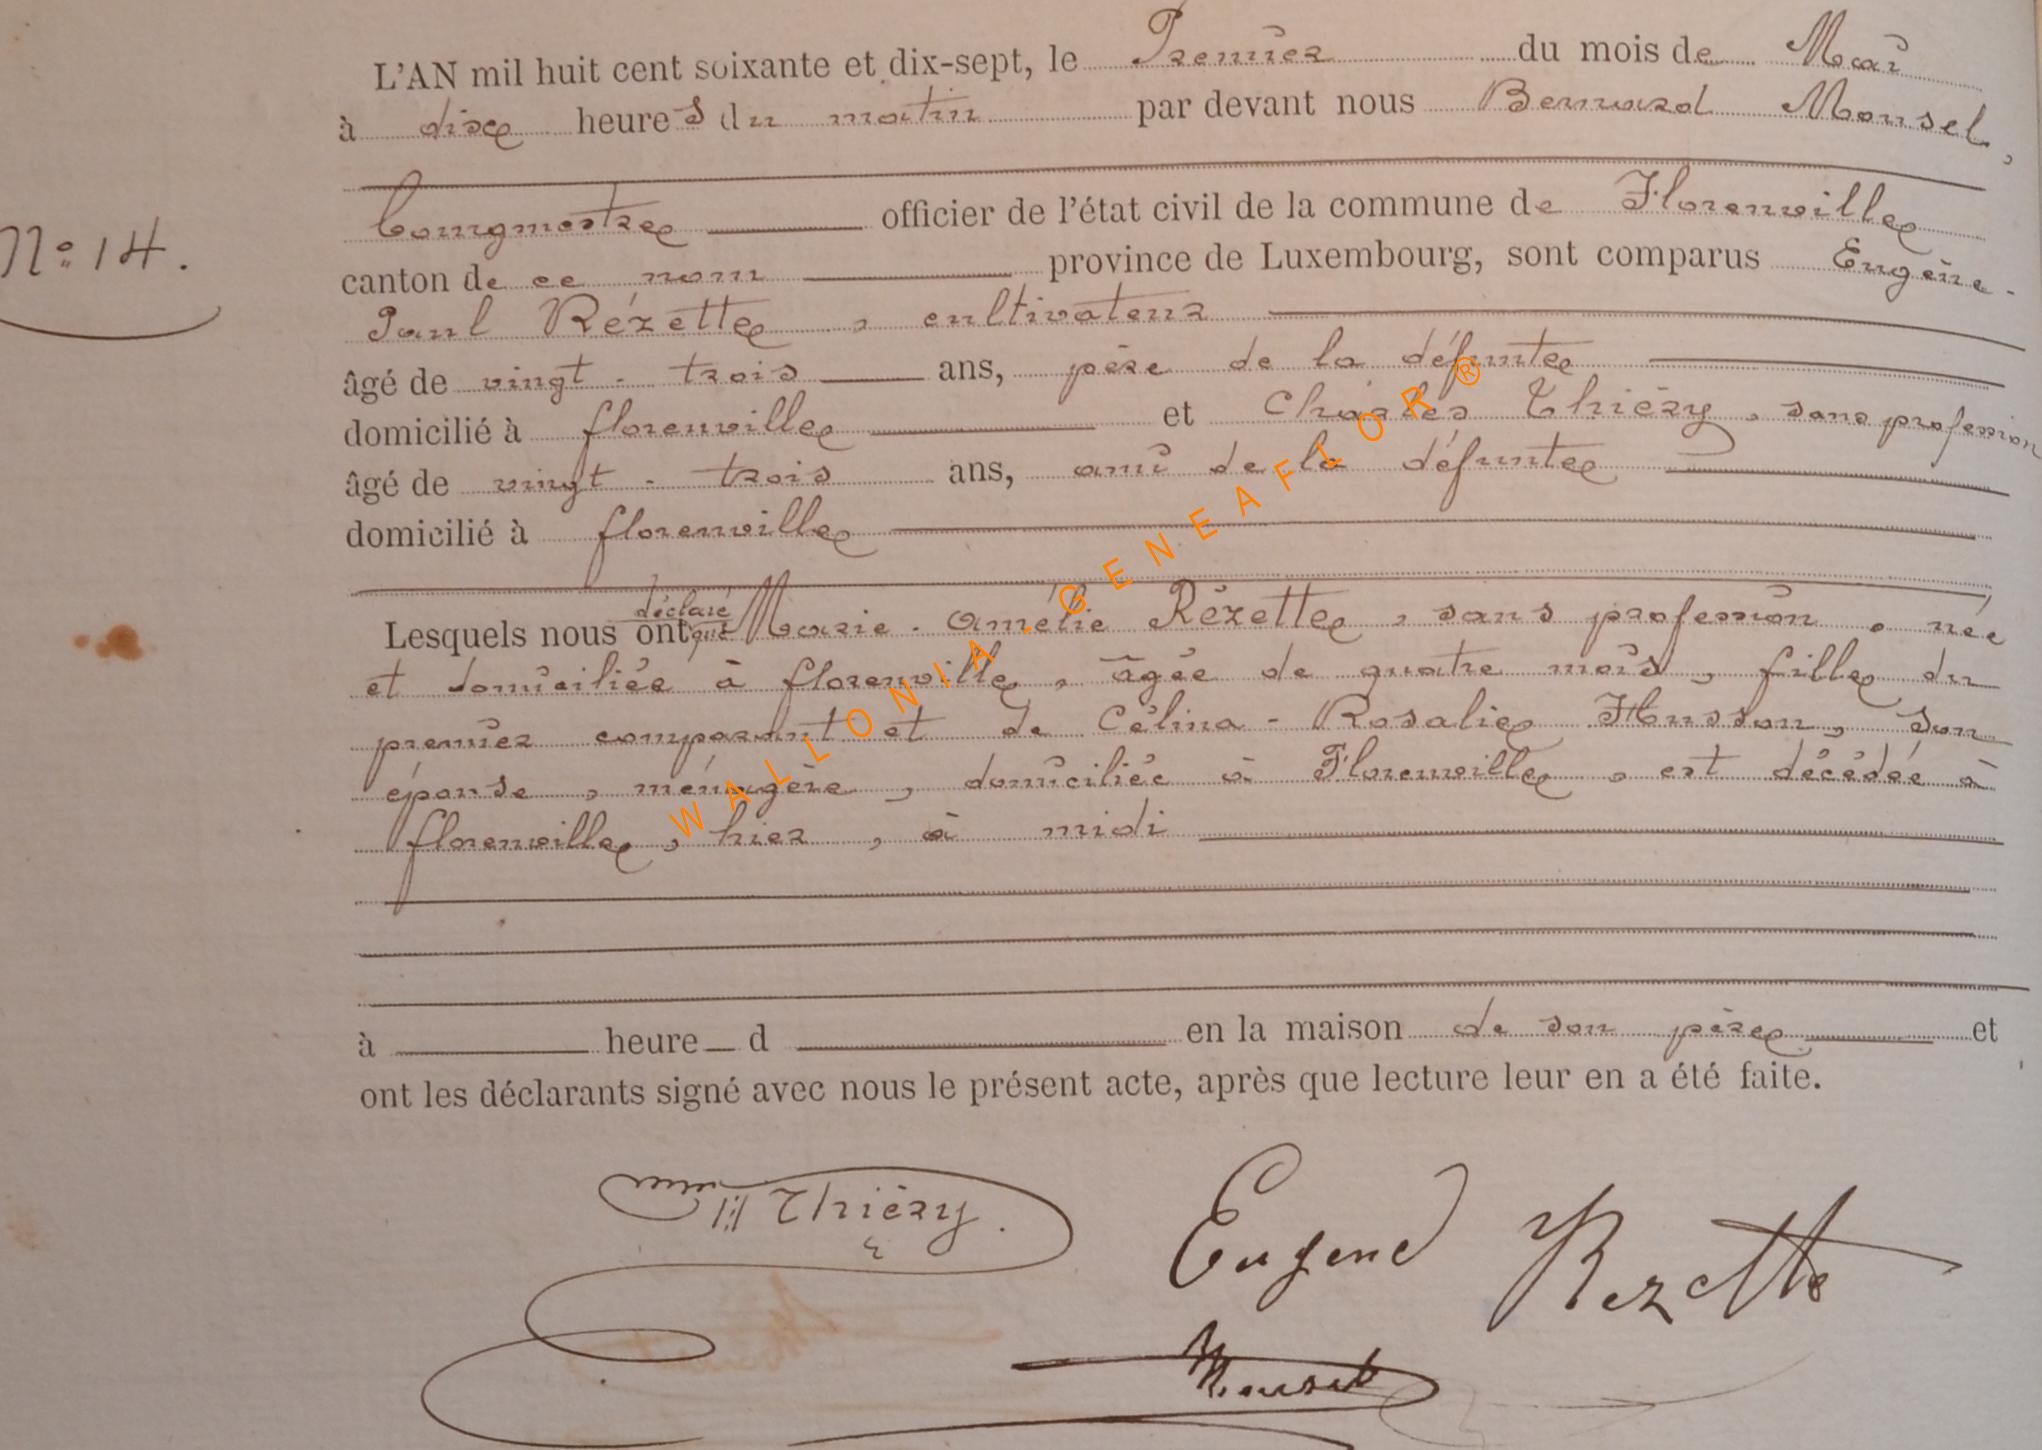 L'AN mil huit cent soixante et dix-sept, le Premier du mois de Mai
à dix heures du matin par devant nous Bernard Monsel,
bourgmestre officier de l'état civil de la commune de Florenville
N° 14.
canton de ce nom province de Luxembourg, sont comparus Eugène-
Paul Rézette, cultivateur
âgé de vingt-trois ans, père de la défunte
domicilié à florenville et Charles Thiéry, sans profession
âgé de vingt-trois ans, ami de la défunte
domicilié à florenville
déclaré
Lesquels nous ont que Marie-Amélie Rézette, sans profession, née
et domiciliée à florenville, âgée de quatre mois, fille du
premier comparant et de Célina-Rosalie Husson, son
épouse, ménagère, domiciliée à Florenville, est décédée à
florenville, hier, à midi
à heure d en la maison de son père et
ont les déclarants signé avec nous le présent acte, après que lecture leur en a été faite.
Thiéry. Eugene Rezette
Monsel
WALLONIA-GENEAFLOR®